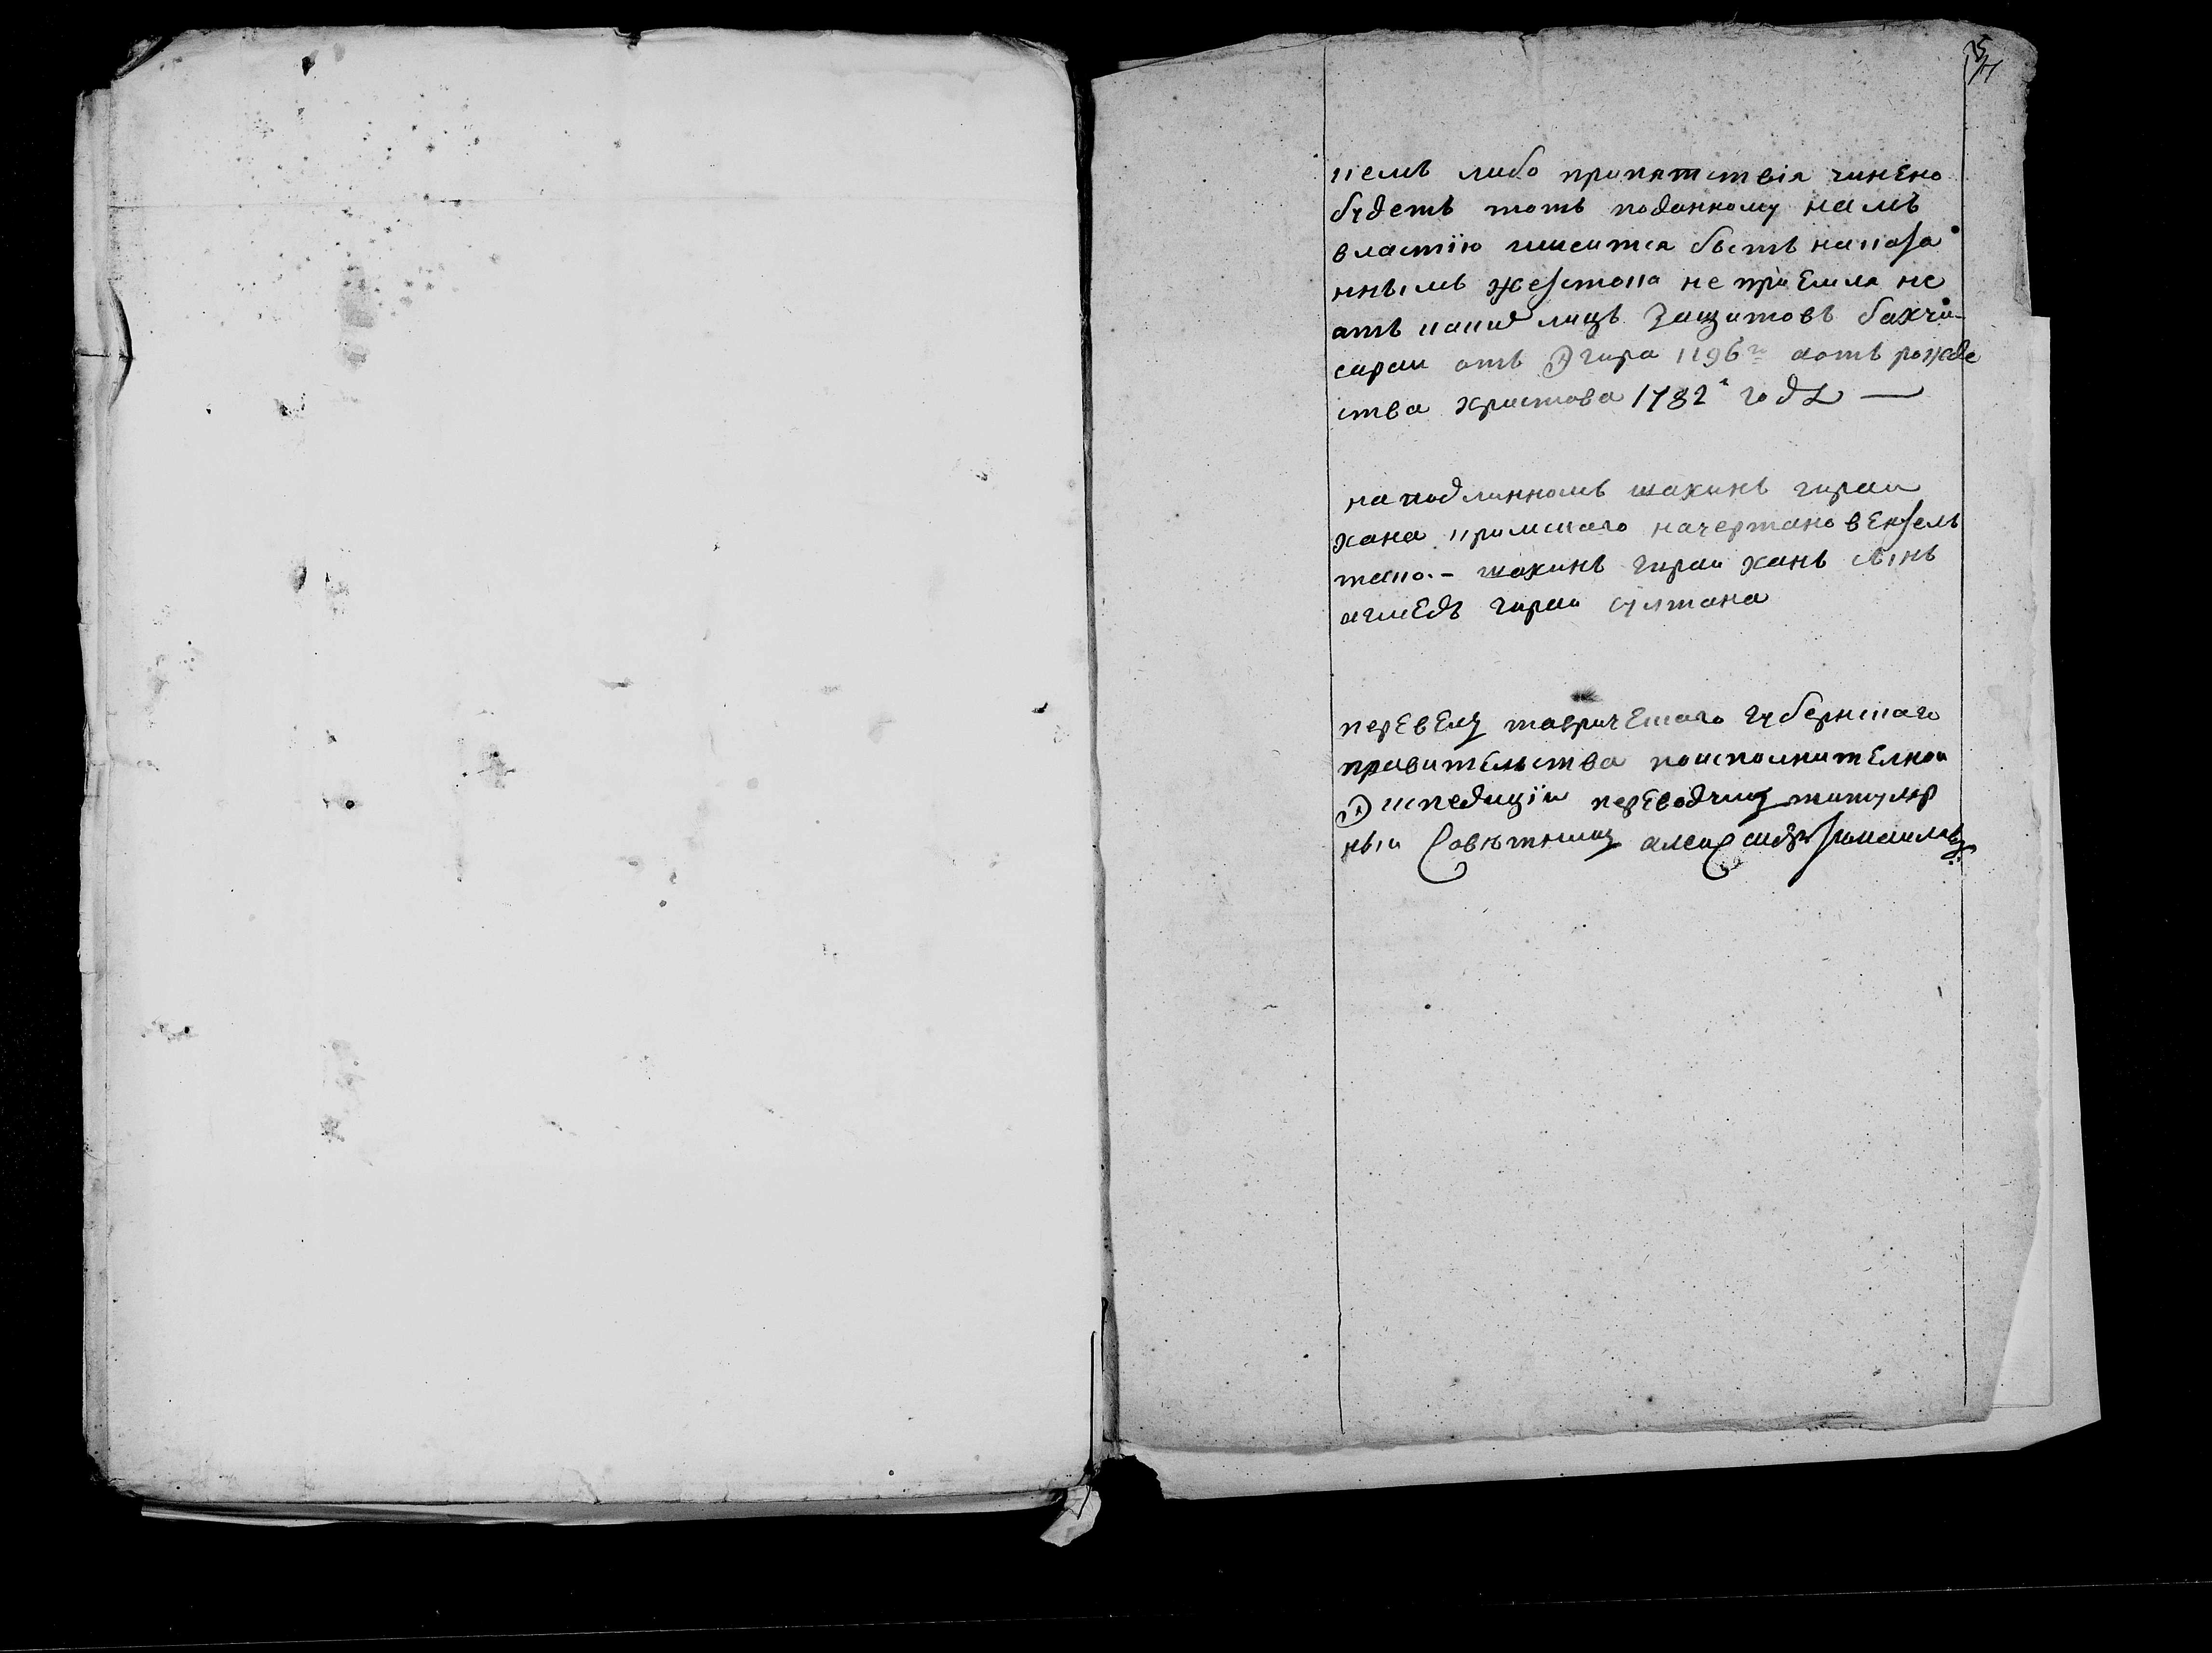 кемъ либо припятствія чинено
будетъ тотъ поданному намъ
властію имеитса быть наказа
ннымъ жестоко не приемля не
отъ какид лицъ защитовъ бахчи-
сараи отъ Эгира 1196го а отъ рожде
ства христова 1782г году —
на подлинномъ шахинъ гираи
хана крымскаго начертано вензель
тако.- шахинъ гираи ханъ сынъ
агмедъ гираи султана
перевелъ таврическаго губернскаго
правительства по исполнителнои
Экспедиціи переводчикъ титуляр
ныи Советникъ александръ